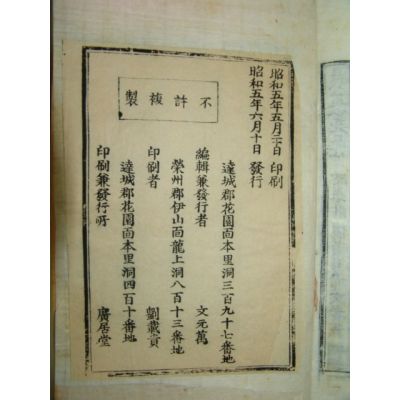 昭和五年五月三十日 印刷
昭和五年六月十日 發行
不許複製
達城郡花園面本里洞三百九十七番地
編輯兼發行者 文元萬
榮州郡伊山面龍上洞八百十三番地
印刷者 劉載
達城郡花園面本里洞四百十番地
印刷兼發行所 廣居堂